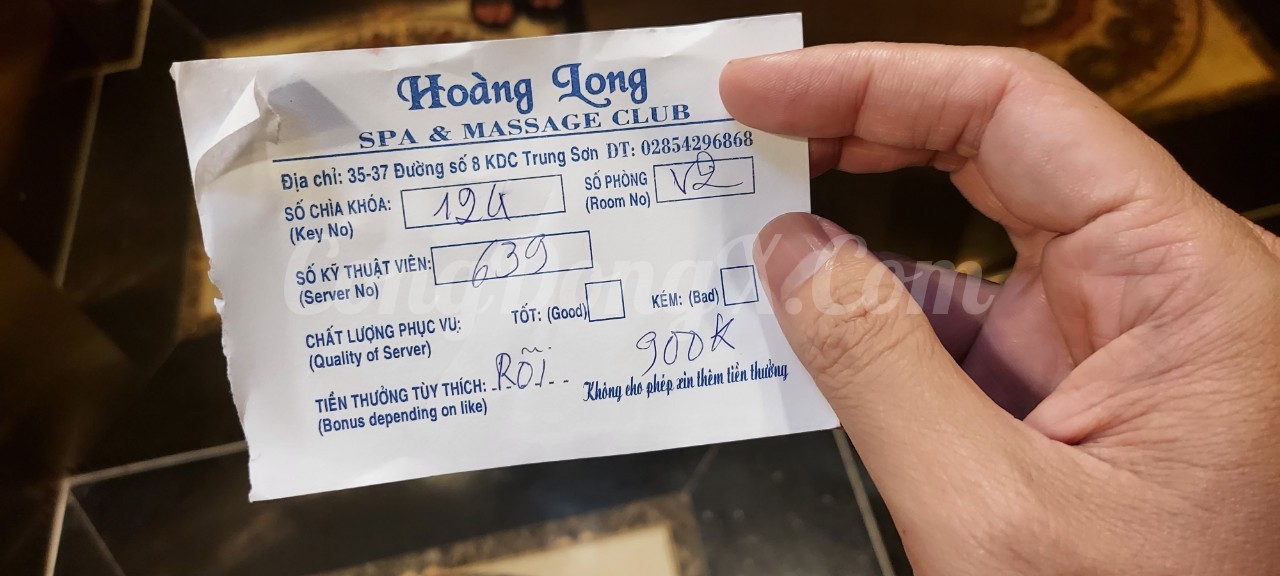 Hoàng Long
SPA & MASSAGE CLUB
Địa chỉ: 35-37 Đường số 8 KDC Trung Sơn ĐT: 02854296868
SỐ CHÌA KHÓA: 124 SỐ PHÒNG V2
(Key No) (Room No)
SỐ KỸ THUẬT VIÊN: 639
(Server No)
CHẤT LƯỢNG PHỤC VỤ: TỐT: (Good) KÉM: (Bad)
(Quality of Server)
900K
TIỀN THƯỞNG TÙY THÍCH: Rồi Không cho phép xin thêm tiền thưởng
(Bonus depending on like)
CongDongX.Com